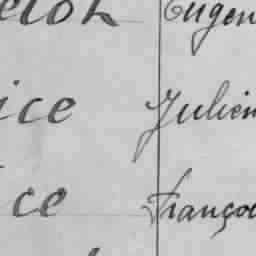 elon Eugen
ice Julien
ice Franço